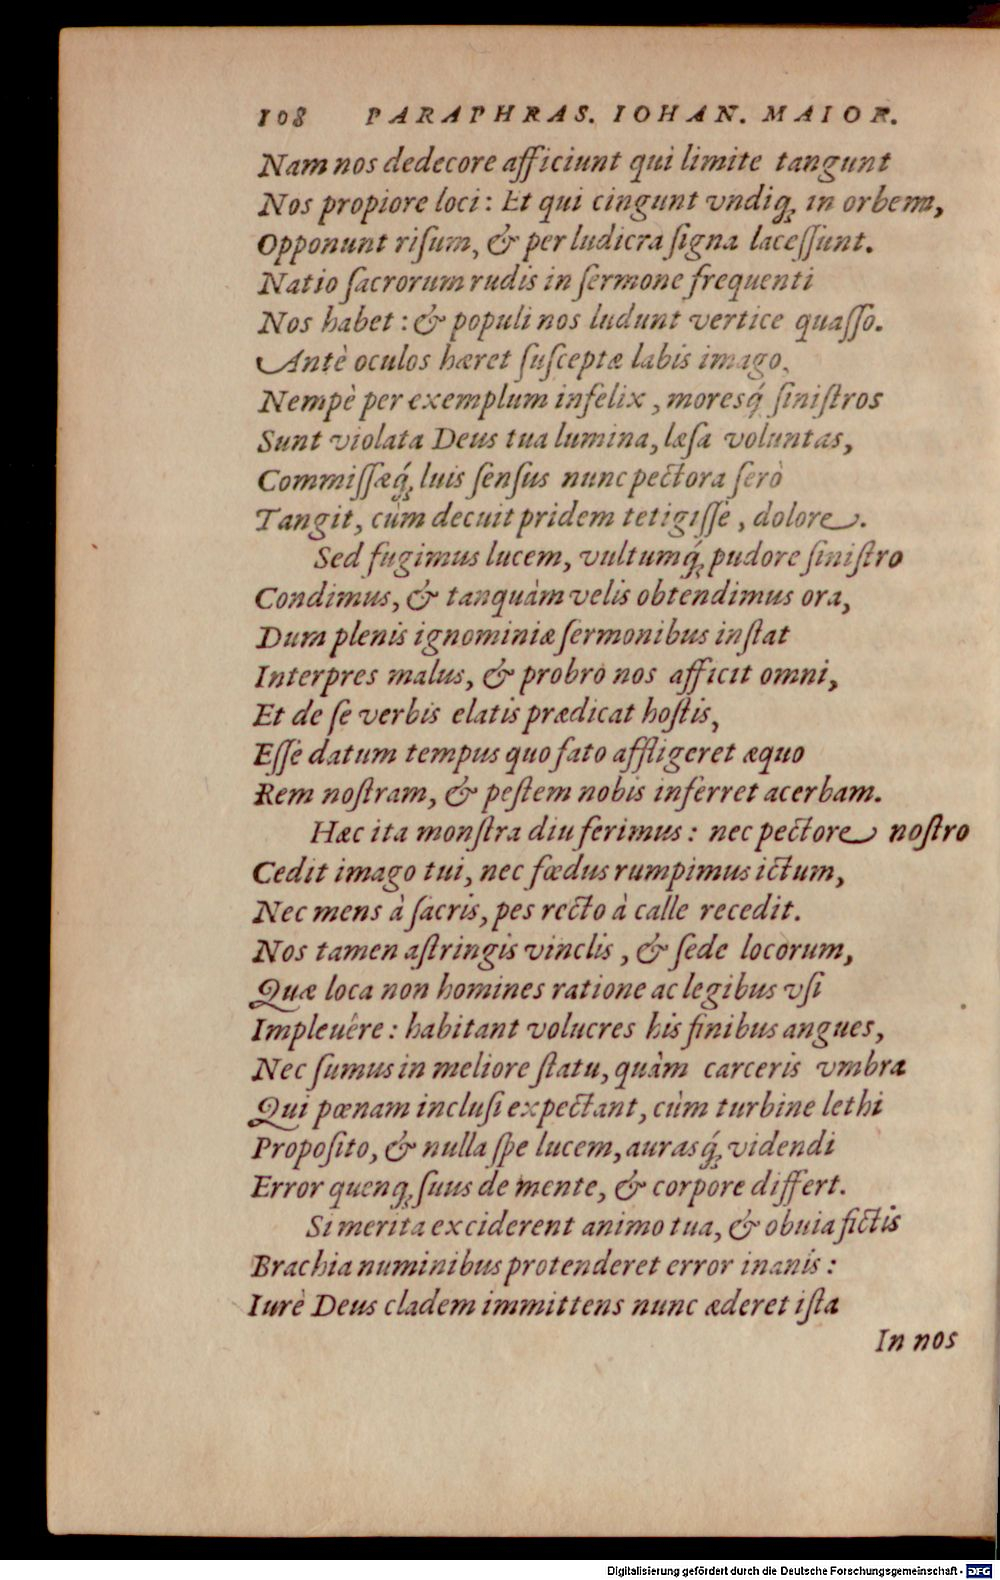 108 PARAPHRAS. IOHAN. MAIOR.
Nam nos dedecore afficiunt qui limite tangunt
Nos propiore loci: Et qui cingunt vndiq; in orbem,
Opponunt risum, & per ludicra signa lacessunt.
Natio sacrorum rudis in sermone frequenti
Nos habet: & populi nos ludunt vertice quasso.
Antè oculos hæret susceptæ labis imago,
Nempè per exemplum infelix, moresq́; sinistros
Sunt violata Deus tua lumina, læsa voluntas,
Commissæq́; luis sensus nunc pectora serò
Tangit, cùm decuit pridem tetigisse, dolore.
Sed fugimus lucem, vultumq́; pudore sinistro
Condimus, & tanquàm velis obtendimus ora,
Dum plenis ignominiæ sermonibus instat
Interpres malus, & probro nos afficit omni,
Et de se verbis elatis prædicat hostis,
Esse datum tempus quo fato affligeret æquo
Rem nostram, & pestem nobis inferret acerbam.
Hæc ita monstra diu ferimus: nec pectore nostro
Cedit imago tui, nec fœdus rumpimus ictum,
Nec mens à sacris, pes recto à calle recedit.
Nos tamen astringis vinclis, & sede locorum,
Quæ loca non homines ratione ac legibus vsi
Impleuêre: habitant volucres his finibus angues,
Nec sumus in meliore statu, quàm carceris vmbra
Qui pœnam inclusi expectant, cùm turbine lethi
Proposito, & nulla spe lucem, aurasq́; videndi
Error quenq; suus de mente, & corpore differt.
Si merita exciderent animo tua, & obuia fictis
Brachia numinibus protenderet error inanis:
Iurè Deus cladem immittens nunc æderet ista
In nos
Digitalisierung gefördert durch die Deutsche Forschungsgemeinschaft - DFG